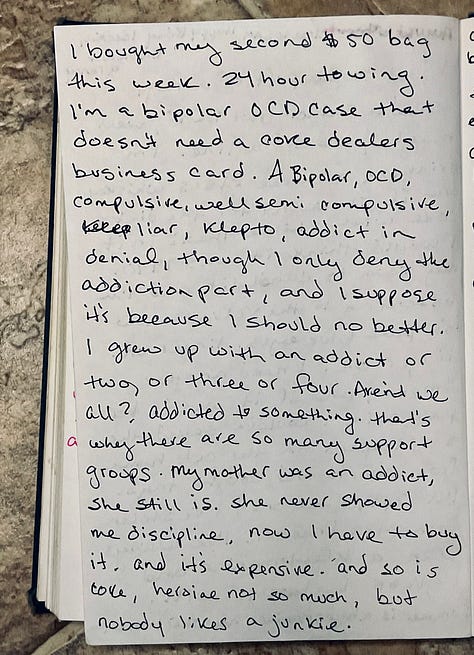 I bought my second $50 bag
this week. 24 hour towing.
I'm a bipolar OCD case that
doesn't need a coke dealers
business card. A Bipolar, OCD,
compulsive, well semi compulsive,
liar, klepto, addict in
denial, though I only deny the
addiction part, and I suppose
it's because I should no better.
I grew up with an addict or
two, or three or four. Aren't we
all? addicted to something. that's
why there are so many support
groups. My mother was an addict,
she still is. she never showed
me discipline, now I have to buy
it. and it's expensive. and so is
coke, heroine not so much, but
nobody likes a junkie.